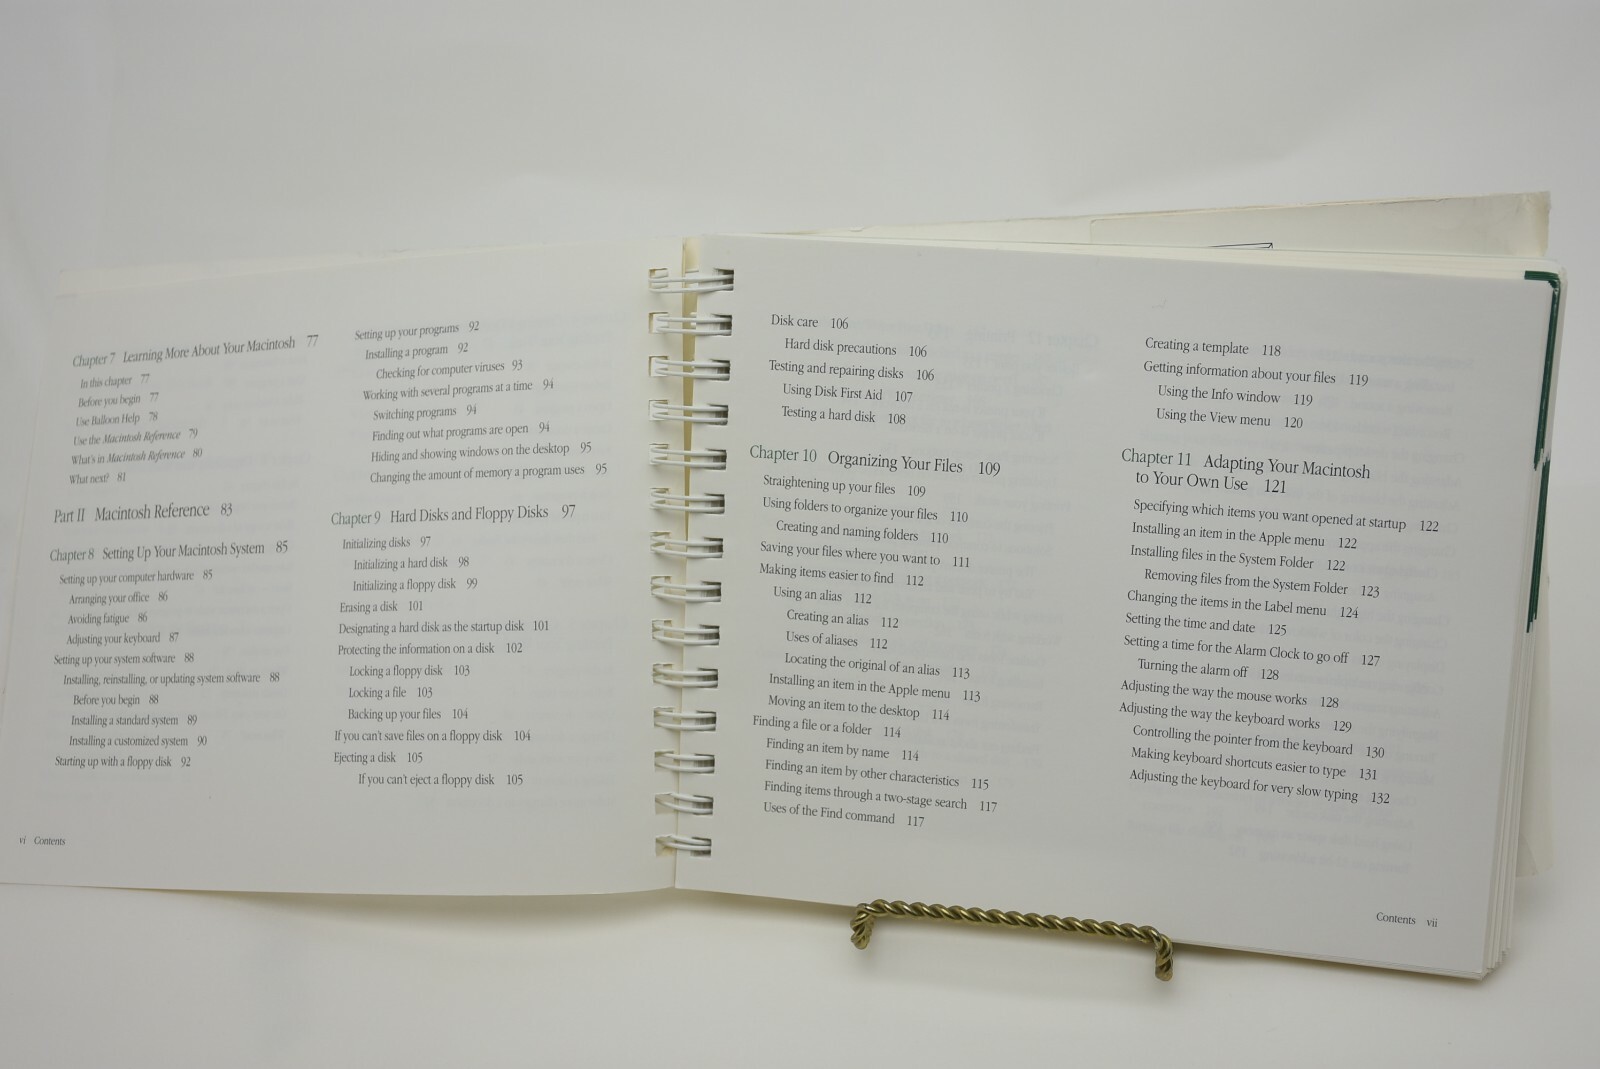 Chapter 7 Learning More About Your Macintosh 77
In this chapter 77
Before you begin 77
Use Balloon Help 78
Use the Macintosh Reference 79
What's in Macintosh Reference 80
What next? 81
Part II Macintosh Reference 83
Chapter 8 Setting Up Your Macintosh System 85
Setting up your computer hardware 85
Arranging your office 86
Avoiding fatigue 86
Adjusting your keyboard 87
Setting up your system software 88
Installing, reinstalling, or updating system software 88
Before you begin 88
Installing a standard system 89
Installing a customized system 90
Starting up with a floppy disk 92
Setting up your programs 92
Installing a program 92
Checking for computer viruses 93
Working with several programs at a time 94
Switching programs 94
Finding out what programs are open 94
Hiding and showing windows on the desktop 95
Changing the amount of memory a program uses 95
Chapter 9 Hard Disks and Floppy Disks 97
Initializing disks 97
Initializing a hard disk 98
Initializing a floppy disk 99
Erasing a disk 101
Designating a hard disk as the startup disk 101
Protecting the information on a disk 102
Locking a floppy disk 103
Locking a file 103
Backing up your files 104
If you can't save files on a floppy disk 104
Ejecting a disk 105
If you can't eject a floppy disk 105
vi Contents
Disk care 106
Hard disk precautions 106
Testing and repairing disks 106
Using Disk First Aid 107
Testing a hard disk 108
Chapter 10 Organizing Your Files 109
Straightening up your files 109
Using folders to organize your files 110
Creating and naming folders 110
Saving your files where you want to 111
Making items easier to find 112
Using an alias 112
Creating an alias 112
Uses of aliases 112
Locating the original of an alias 113
Installing an item in the Apple menu 113
Moving an item to the desktop 114
Finding a file or a folder 114
Finding an item by name 114
Finding an item by other characteristics 115
Finding items through a two-stage search 117
Uses of the Find command 117
Creating a template 118
Getting information about your files 119
Using the Info window 119
Using the View menu 120
Chapter 11 Adapting Your Macintosh
to Your Own Use 121
Specifying which items you want opened at startup 122
Installing an item in the Apple menu 122
Installing files in the System Folder 122
Removing files from the System Folder 123
Changing the items in the Label menu 124
Setting the time and date 125
Setting a time for the Alarm Clock to go off 127
Turning the alarm off 128
Adjusting the way the mouse works 128
Adjusting the way the keyboard works 129
Controlling the pointer from the keyboard 130
Making keyboard shortcuts easier to type 131
Adjusting the keyboard for very slow typing 132
Contents vii